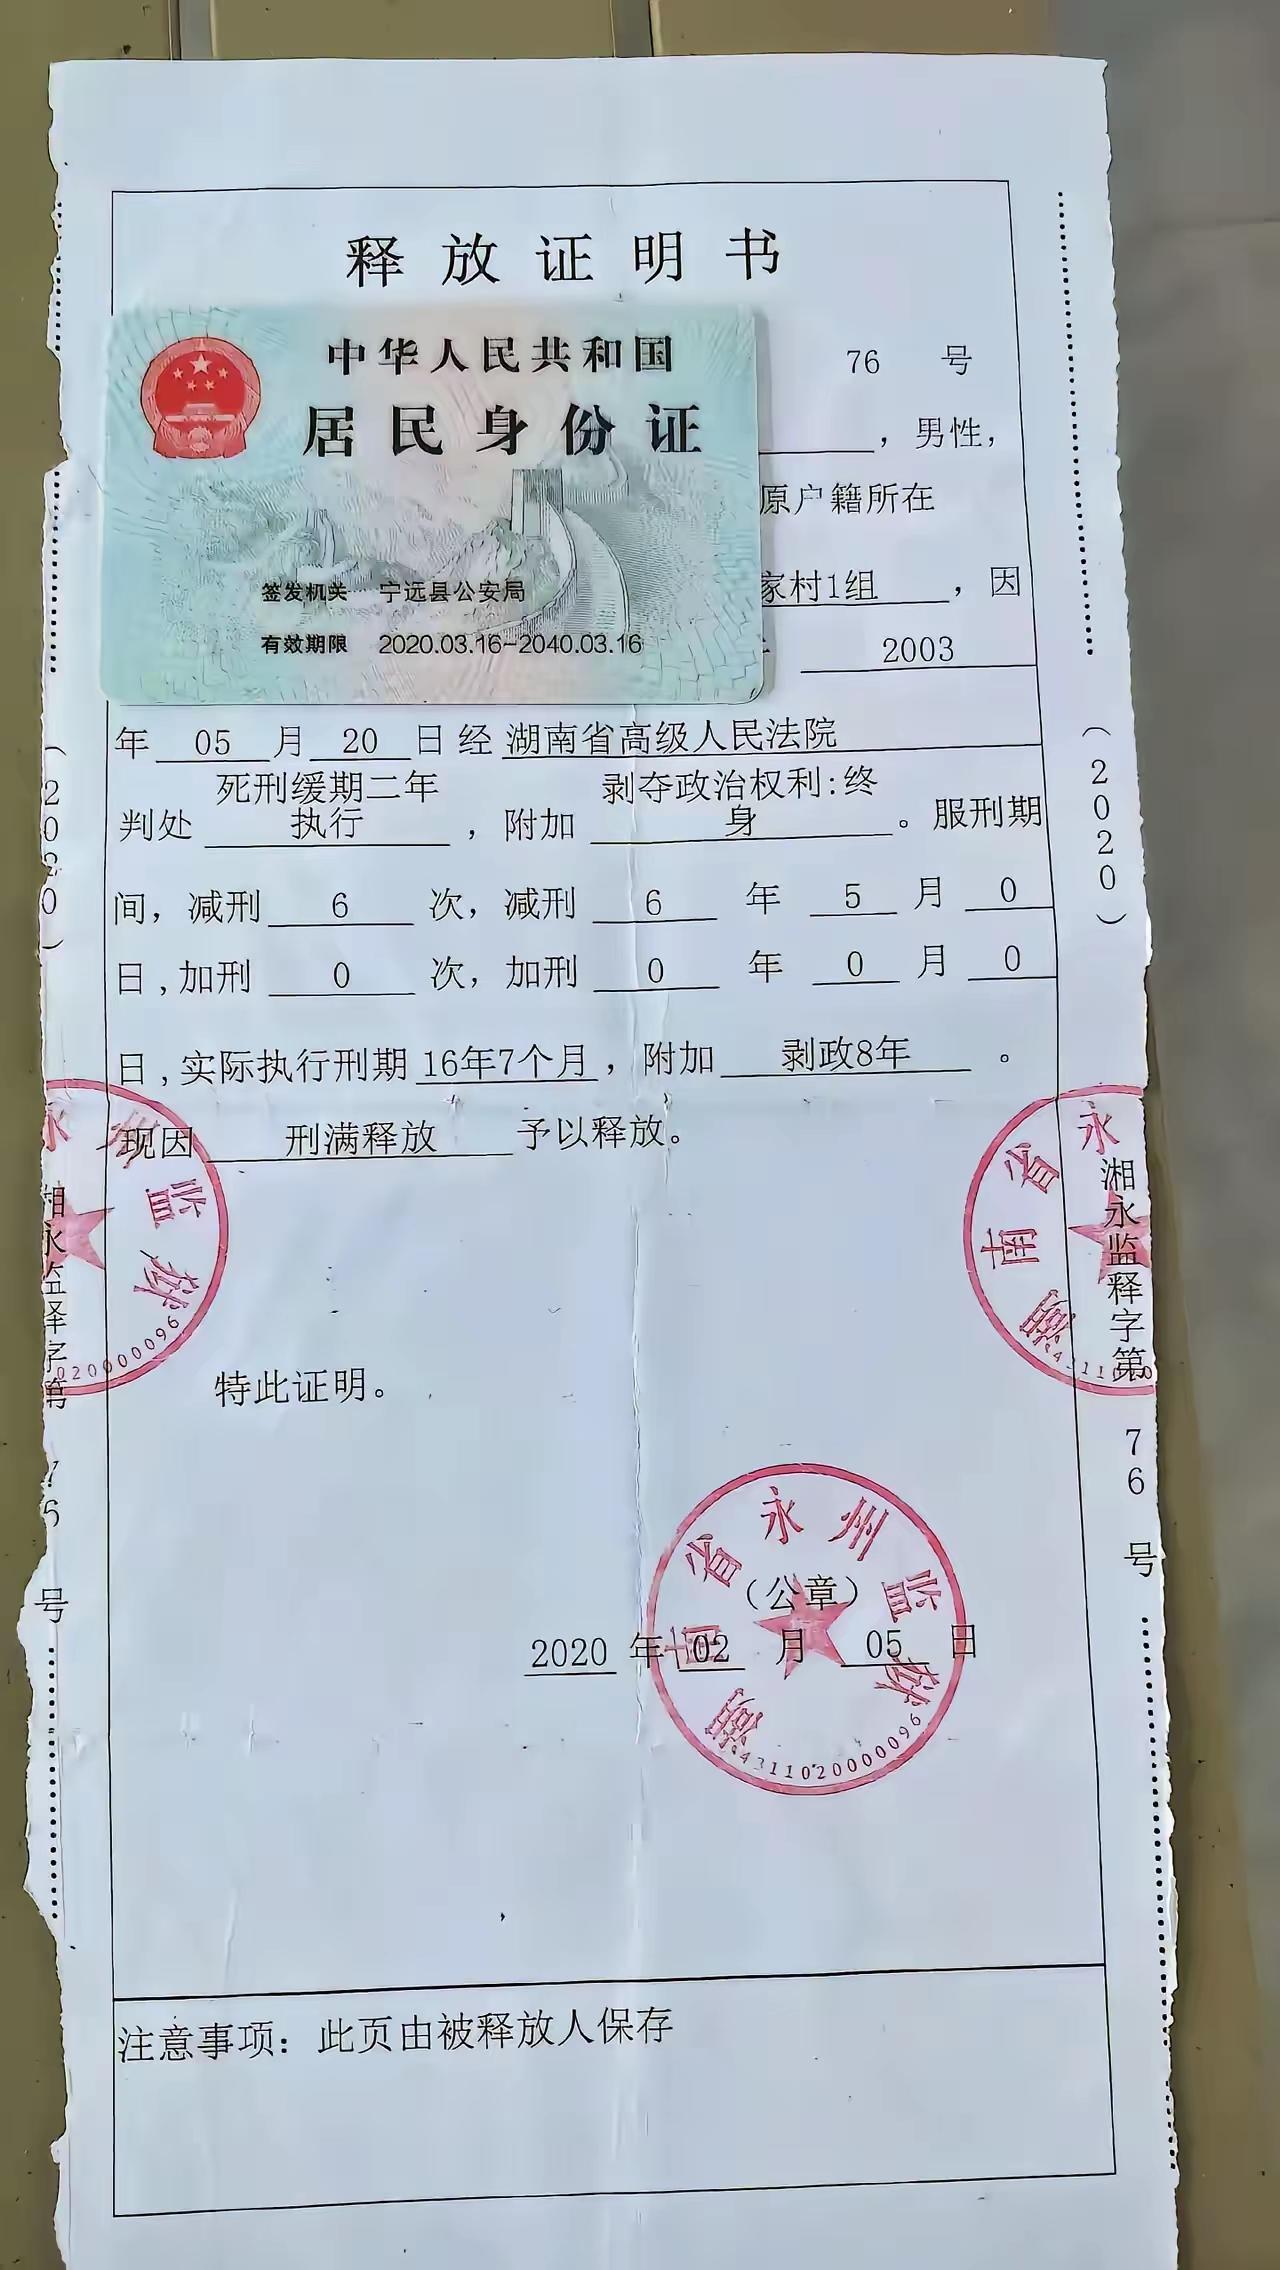 释放证明书
中华人民共和国
居民身份证
签发机关 宁远县公安局
有效期限 2020.03.16-2040.03.16
76 号
，男性，
原户籍所在
家村1组，因
2003
年 05 月 20 日 经 湖南省高级人民法院
判处 死刑缓期二年执行 ，附加 剥夺政治权利:终身 。服刑期
间，减刑 6 次，减刑 6 年 5 月 0
日,加刑 0 次，加刑 0 年 0 月 0
日,实际执行刑期 16年7个月，附加 剥政8年 。
现因 刑满释放 予以释放。
特此证明。
（公章）
2020 年 02 月 05 日
湖南省永州监狱
4311020000096
注意事项：此页由被释放人保存
（2020）
湘永监释字第
76
号
（2020）
湘永监释字第
76
号
永州监狱
020000096
湖南省永
43110